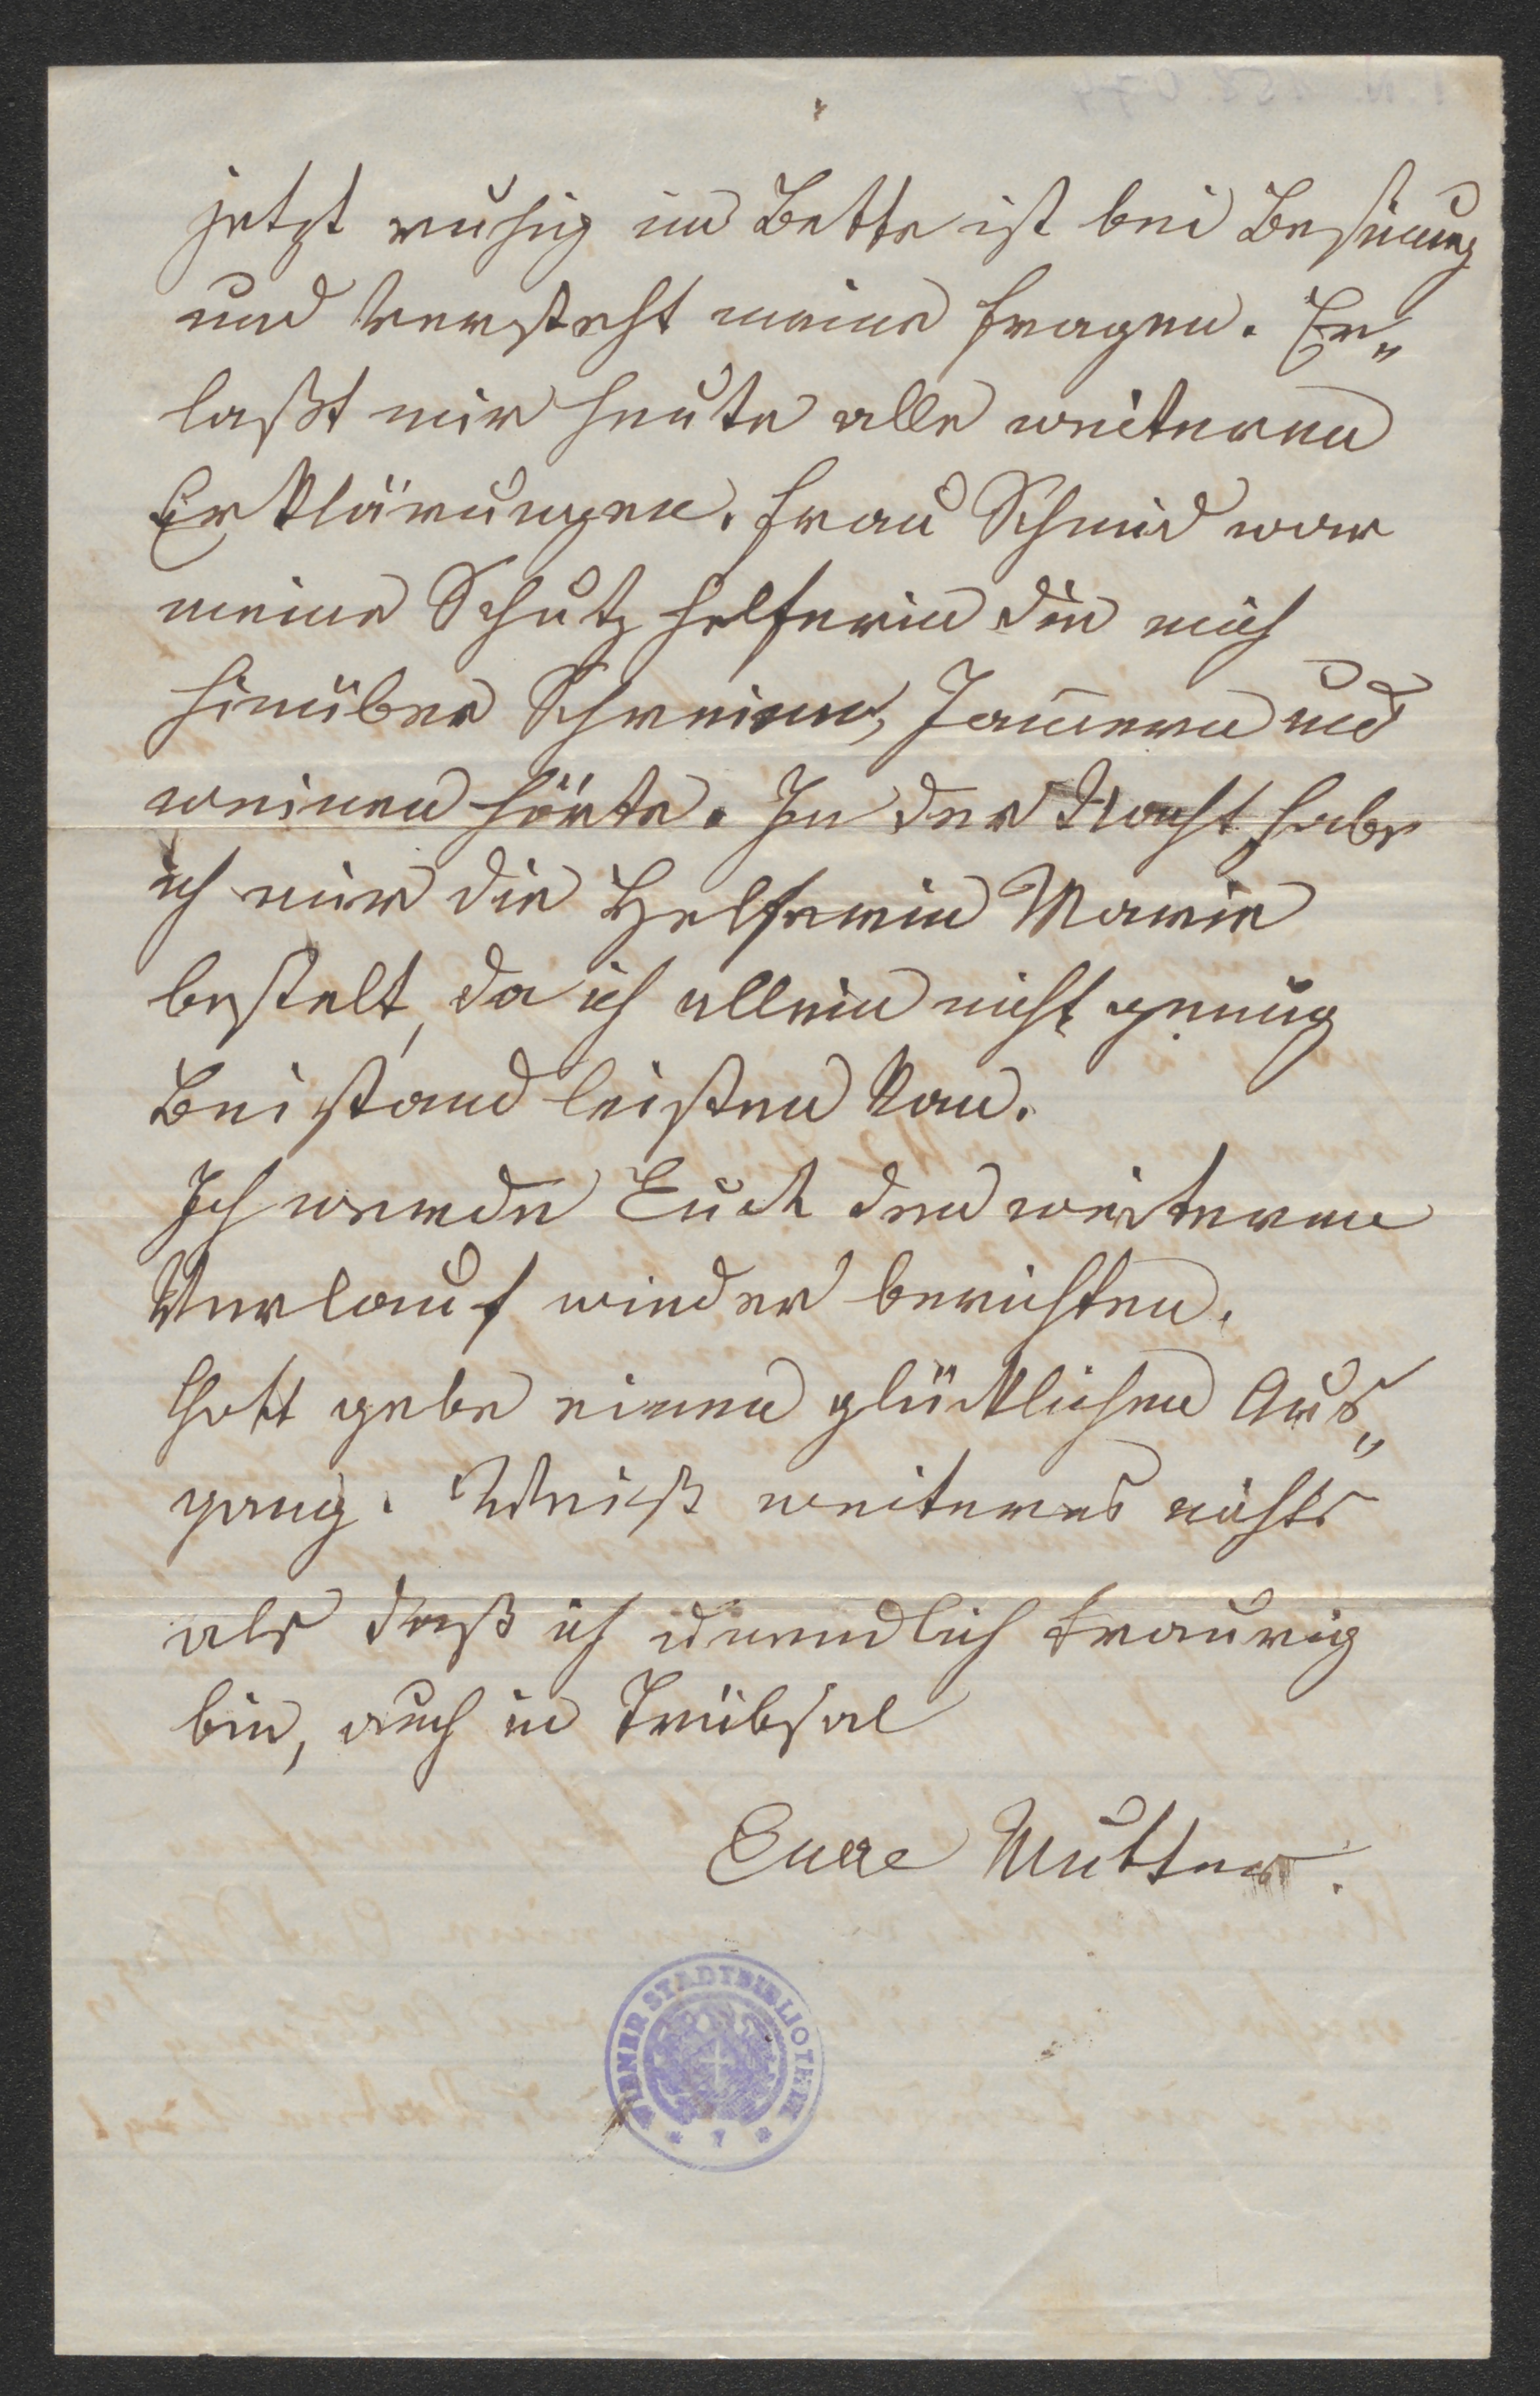 jetzt ruhig im Bette ist bei Besinung
und versteht meine Fragen. Er„
laßt mir heute alle weiteren
Erklärungen. Frau Schmid war
meine Schutzhelferin die mich
hinüber Schreien, Jam̄ern und
weinen hörte. In der Nacht habe
ich mir die Helferin Marie
bestelt, da ich allein nicht genug
Beistand leisten kan.
Ich werde Euch den weiteren
Verlauf wieder berichten.
Gott gebe einen glücklichen Aus„
gang. Weiß weiteres nichts
als daß ich unendlich traurig
bin, auch in Trübsal
Euere Mutter.
WIENER STADTBIBLIOTHEK
* 7 *